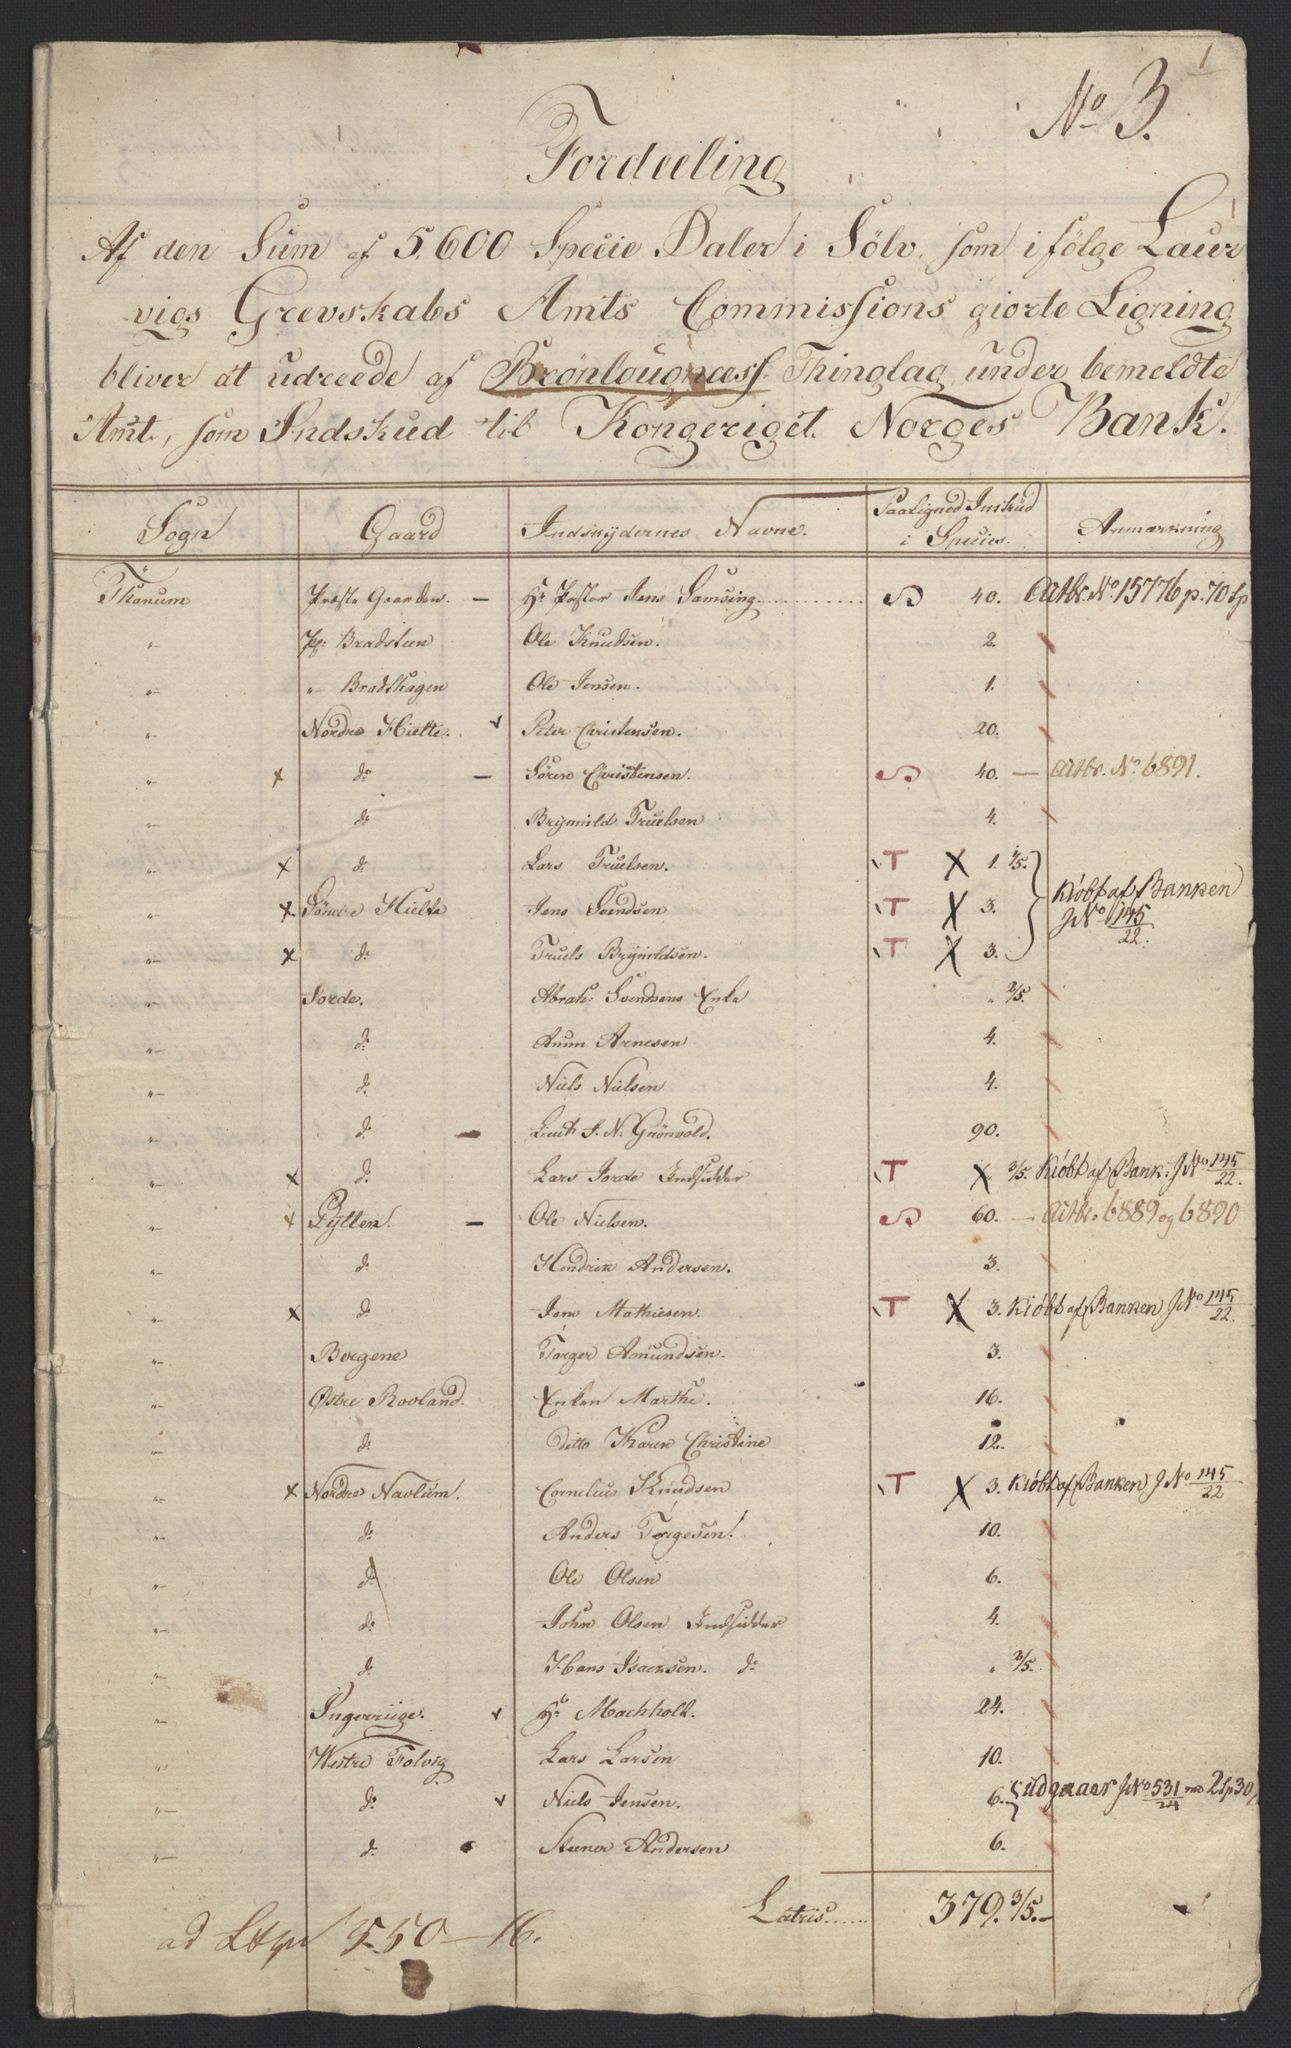 1
No 3.
Fordeeling
Af den Sum af 5,600 Specie Daler i Sölv, som i fölge Laur
vigs Grevskabs Amts Commissions giorte Ligning
bliver at udreede af Brönlougnæss Thinglag under bemeldte
Amt, som Indskud til Kongeriget Norges Bank.
Sogn Gaard Indskydernes Navne. Paaligned Inskud i Species. Anmærkning
Thanum Præste Gaarden. — Hr Pastor Jens Samsing 40. Actbr. No 15776 p. 70 Sp
" Pl: Bradsteen Ole Knudsen. 2.
" " Bradshagen Ole Jensen. 1.
" Nordre Hielte. v Peter Christensen. 20.
" x do — Sören Christensen. S 40. — Actbr. No 6891.
" do Brynnild Truelsen 4.
" x do Lars Truelsen. T X 1. 1/5.
" x Söndre Hielte Jens Svendsen T X 3. Kiöbt af Banken J No 145/22.
" x do Truels Brynildsen. T X 3.
" Jorde. Abrah: Svendsens Enke " 2/5.
" do Anun Arnesen 4.
" do Niels Nielsen 4.
" do — Lieut J. N. Grönvold. 90.
" x do Lars Jorde Indsidder T X 3/5. Kiöbt af Bank: J No 145/22.
" x Pytten. — Ole Nielsen. S 60. — Actbr. 6889 og 6890
" do Hendrik Andersen. 3.
" x do Jens Mathiesen. T X 3. Kiöbt af Banken J No 145/22.
" Bergene Torger Amundsen. 3.
" Östre Rovland. Enken Marthe. 16.
" do Ditto Karen Christine 12.
" x Nordre Navlum. Cornelius Knudsen T X 3. Kiöbt af Banken J No 145/22
" do Anders Torgesen. 10.
" do Ole Olsen 6.
" do John Olsen Indsidder 4.
" do Hans Isacksen. do " 3/5.
" Ingerriige. v Hr Machholt. 24.
" Westre Tolvig Lars Larsen 10.
" do v Niels Jensen. 6. udgaaer J No 531/24 med 2 Sp 30
" do Steener Andersen 6.
Latris 379. 3/5.
ad 550 — 16.